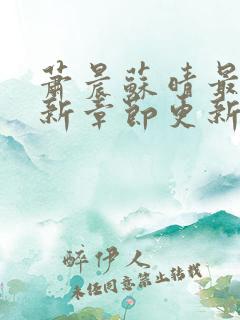 蕭晨蘇晴最
新章節更新
醉伊人
未经同意禁止转载